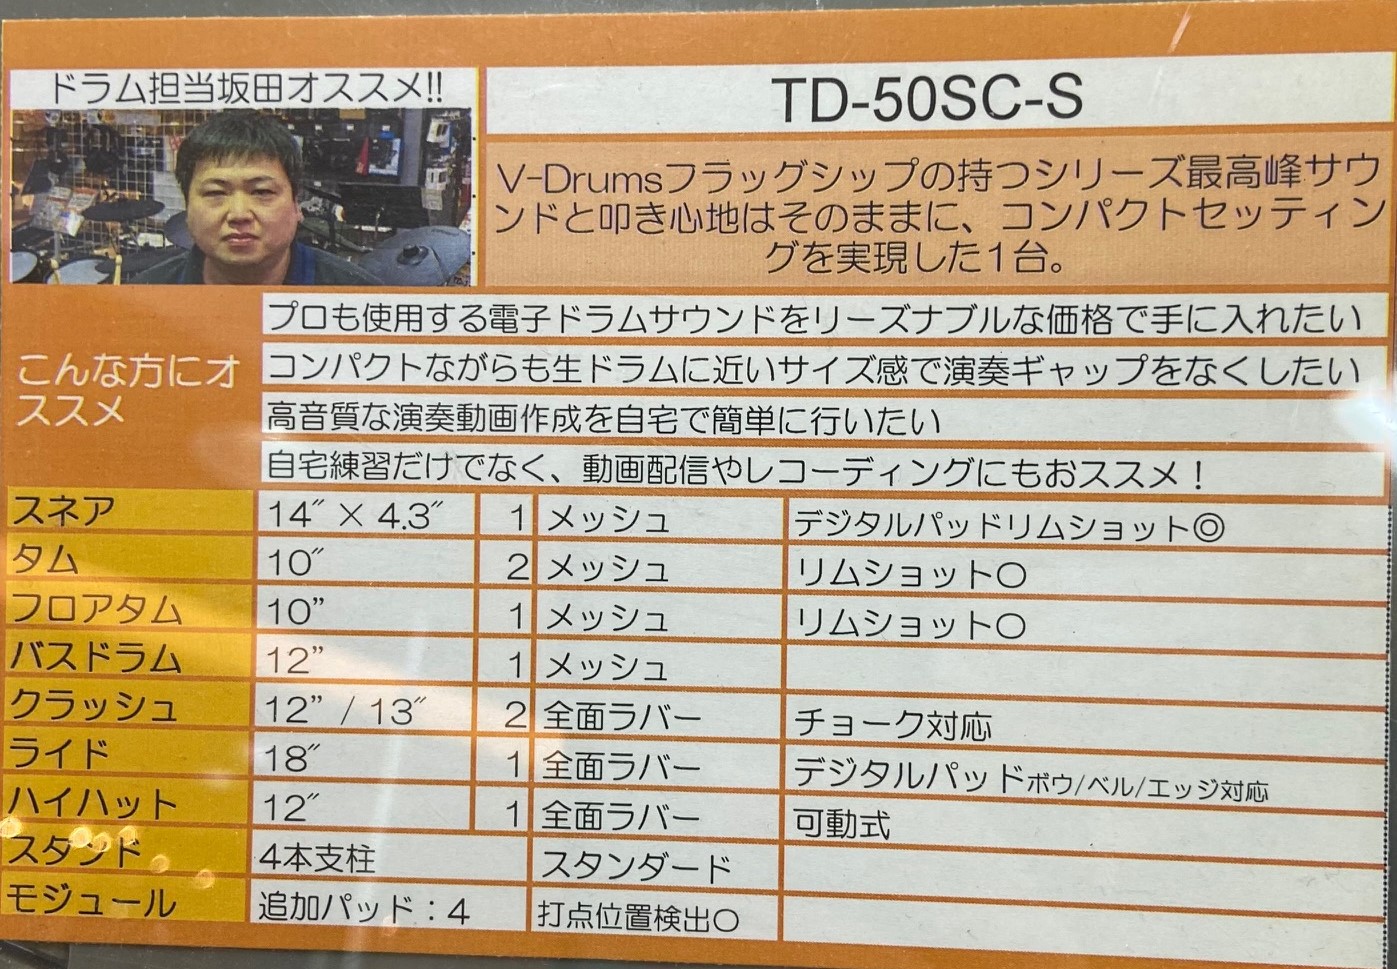 ドラム担当坂田オススメ!!
TD-50SC-S
V-Drumsフラッグシップの持つシリーズ最高峰サウ
ンドと叩き心地はそのままに、コンパクトセッティン
グを実現した1台。
こんな方にオ
ススメ
プロも使用する電子ドラムサウンドをリーズナブルな価格で手に入れたい
コンパクトながらも生ドラムに近いサイズ感で演奏ギャップをなくしたい
高音質な演奏動画作成を自宅で簡単に行いたい
自宅練習だけでなく、動画配信やレコーディングにもおススメ！
スネア 14″ × 4.3″ 1 メッシュ デジタルパッドリムショット◎
タム 10″ 2 メッシュ リムショット○
フロアタム 10” 1 メッシュ リムショット○
バスドラム 12” 1 メッシュ
クラッシュ 12” / 13″ 2 全面ラバー チョーク対応
ライド 18″ 1 全面ラバー デジタルパッドボウ/ベル/エッジ対応
ハイハット 12″ 1 全面ラバー 可動式
スタンド 4本支柱 スタンダード
モジュール 追加パッド：4 打点位置検出○